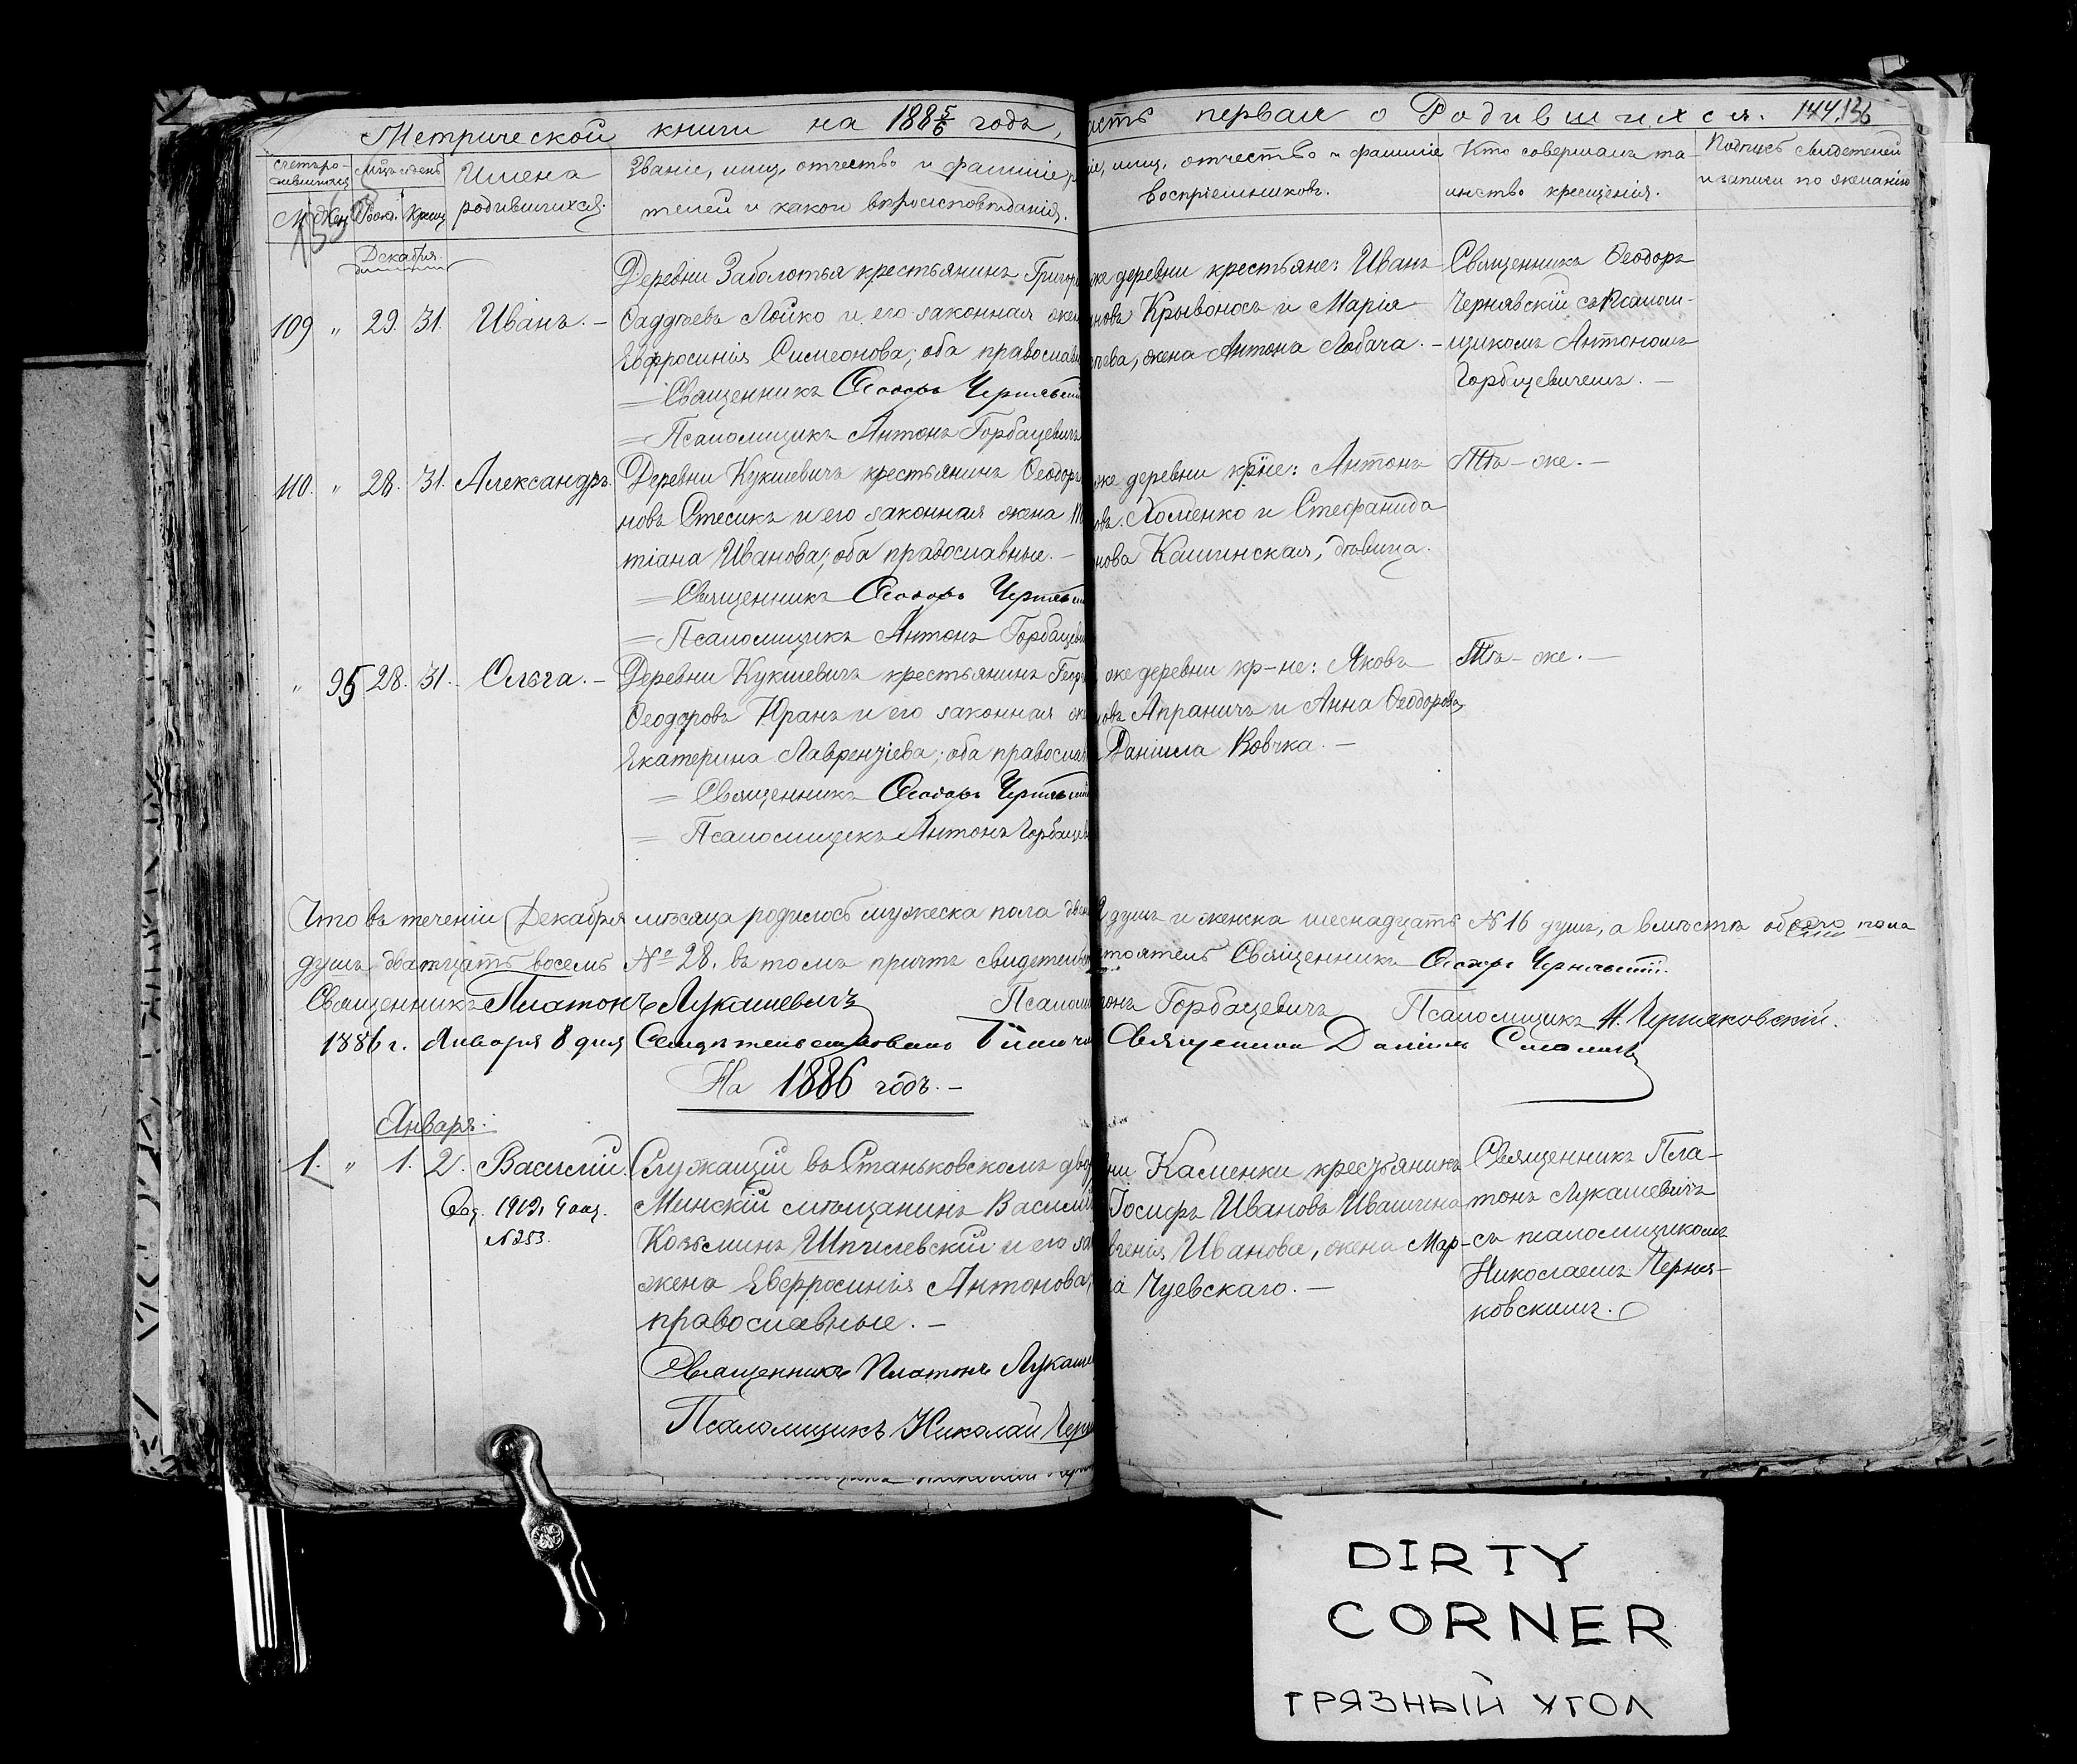 Метрической книги на 1885/6 годъ, асть первая о Родившихся. 144. 136
Счетъ ро-
дившихся
Мцъ и день
Имена
родившихся.
Званіе, имя, отчество и фамиліе
телей и какого вѣроисповѣданія.
іе, имя, отчество и фамиліе
воспріемниковъ.
Кто совершалъ та-
инство крещенія.
Подпись свидетелей
и записи по желанію
М. Жен. Рожд. Крещ.
Декабря
109 " 29. 31. Иванъ. –
Деревни Заболотья крестьянинъ Григор
Фаддѣевъ Лойко и его законная жен
Евфросинія Симеонова; оба православн
= Священникъ Ѳеодоръ Чернявскі
= Псаломщикъ Антонъ Горбацевичъ
же деревни крестьяне: Иванъ
новъ Крывоносъ и Марія
ѣева, жена Антона Лобача. –
Священникъ Ѳеодоръ
Чернявскій съ Псалом-
щикомъ Антономъ
Горбацевичемъ. –
110. " 28. 31. Александръ.
Деревни Кукшевичъ крестьянинъ Ѳеодоръ
новъ Стесикъ и его законная жена
тіана Иванова; оба православные. –
= Священникъ Ѳеодоръ Черняв
= Псаломщикъ Антонъ Горбацеви
же деревни кр–не: Антонъ
овъ Хоменко и Стефанида
нова Кашинская, дѣвица.
Тѣ–же. –
" 95 28. 31. Ольга. –
Деревни Кукшевичъ крестьянинъ Геор
Ѳеодоровъ Юранъ и его законная же
Екатерина Лаврентіева; оба правосла
= Священникъ Ѳеодоръ Чернявскі
= Псаломщикъ Антонъ Горбацев
же деревни кр–не: Яковъ
овъ Апраничъ и Анна Ѳеодорова,
Даніила Вовчка. –
Тѣ–же. –
Что въ теченіи Декабря мѣсяца родилось мужеска пола два душъ и женска шеснадцать № 16 душъ, а вмѣстѣ обоего пола
душъ двадцать восемь № 28. въ томъ причтъ свидетельст тоятель Священникъ Ѳеодоръ Чернявскій.
Священникъ Платонъ Лукашевичъ Псалом онъ Горбацевичъ Псаломщикъ Н. Черняковскій.
1886 г. Января 8 дня Свидѣтельствовано Священникъ Даніилъ
На 1886 годъ. –
Января.
1. " 1. 2. Василій.
№ 253.
Служащій въ Станьковскомъ двор
Минскій мѣщанинъ Василій
Козьминъ Шпилевскій и его за
жена Евфросинія Антонова,
православные. –
Священникъ Платонъ Лукаше
Псаломщикъ Николай Черн
ни Каменки крестьянинъ
Іосифъ Ивановъ Ивашина
вгенія Иванова, жена Мар-
а Чуевскаго. –
Священникъ Пла-
тонъ Лукашевичъ
съ псаломщикомъ
Николаемъ Черня-
ковскимъ.
DIRTY
CORNER
ГРЯЗНЫЙ УГОЛ